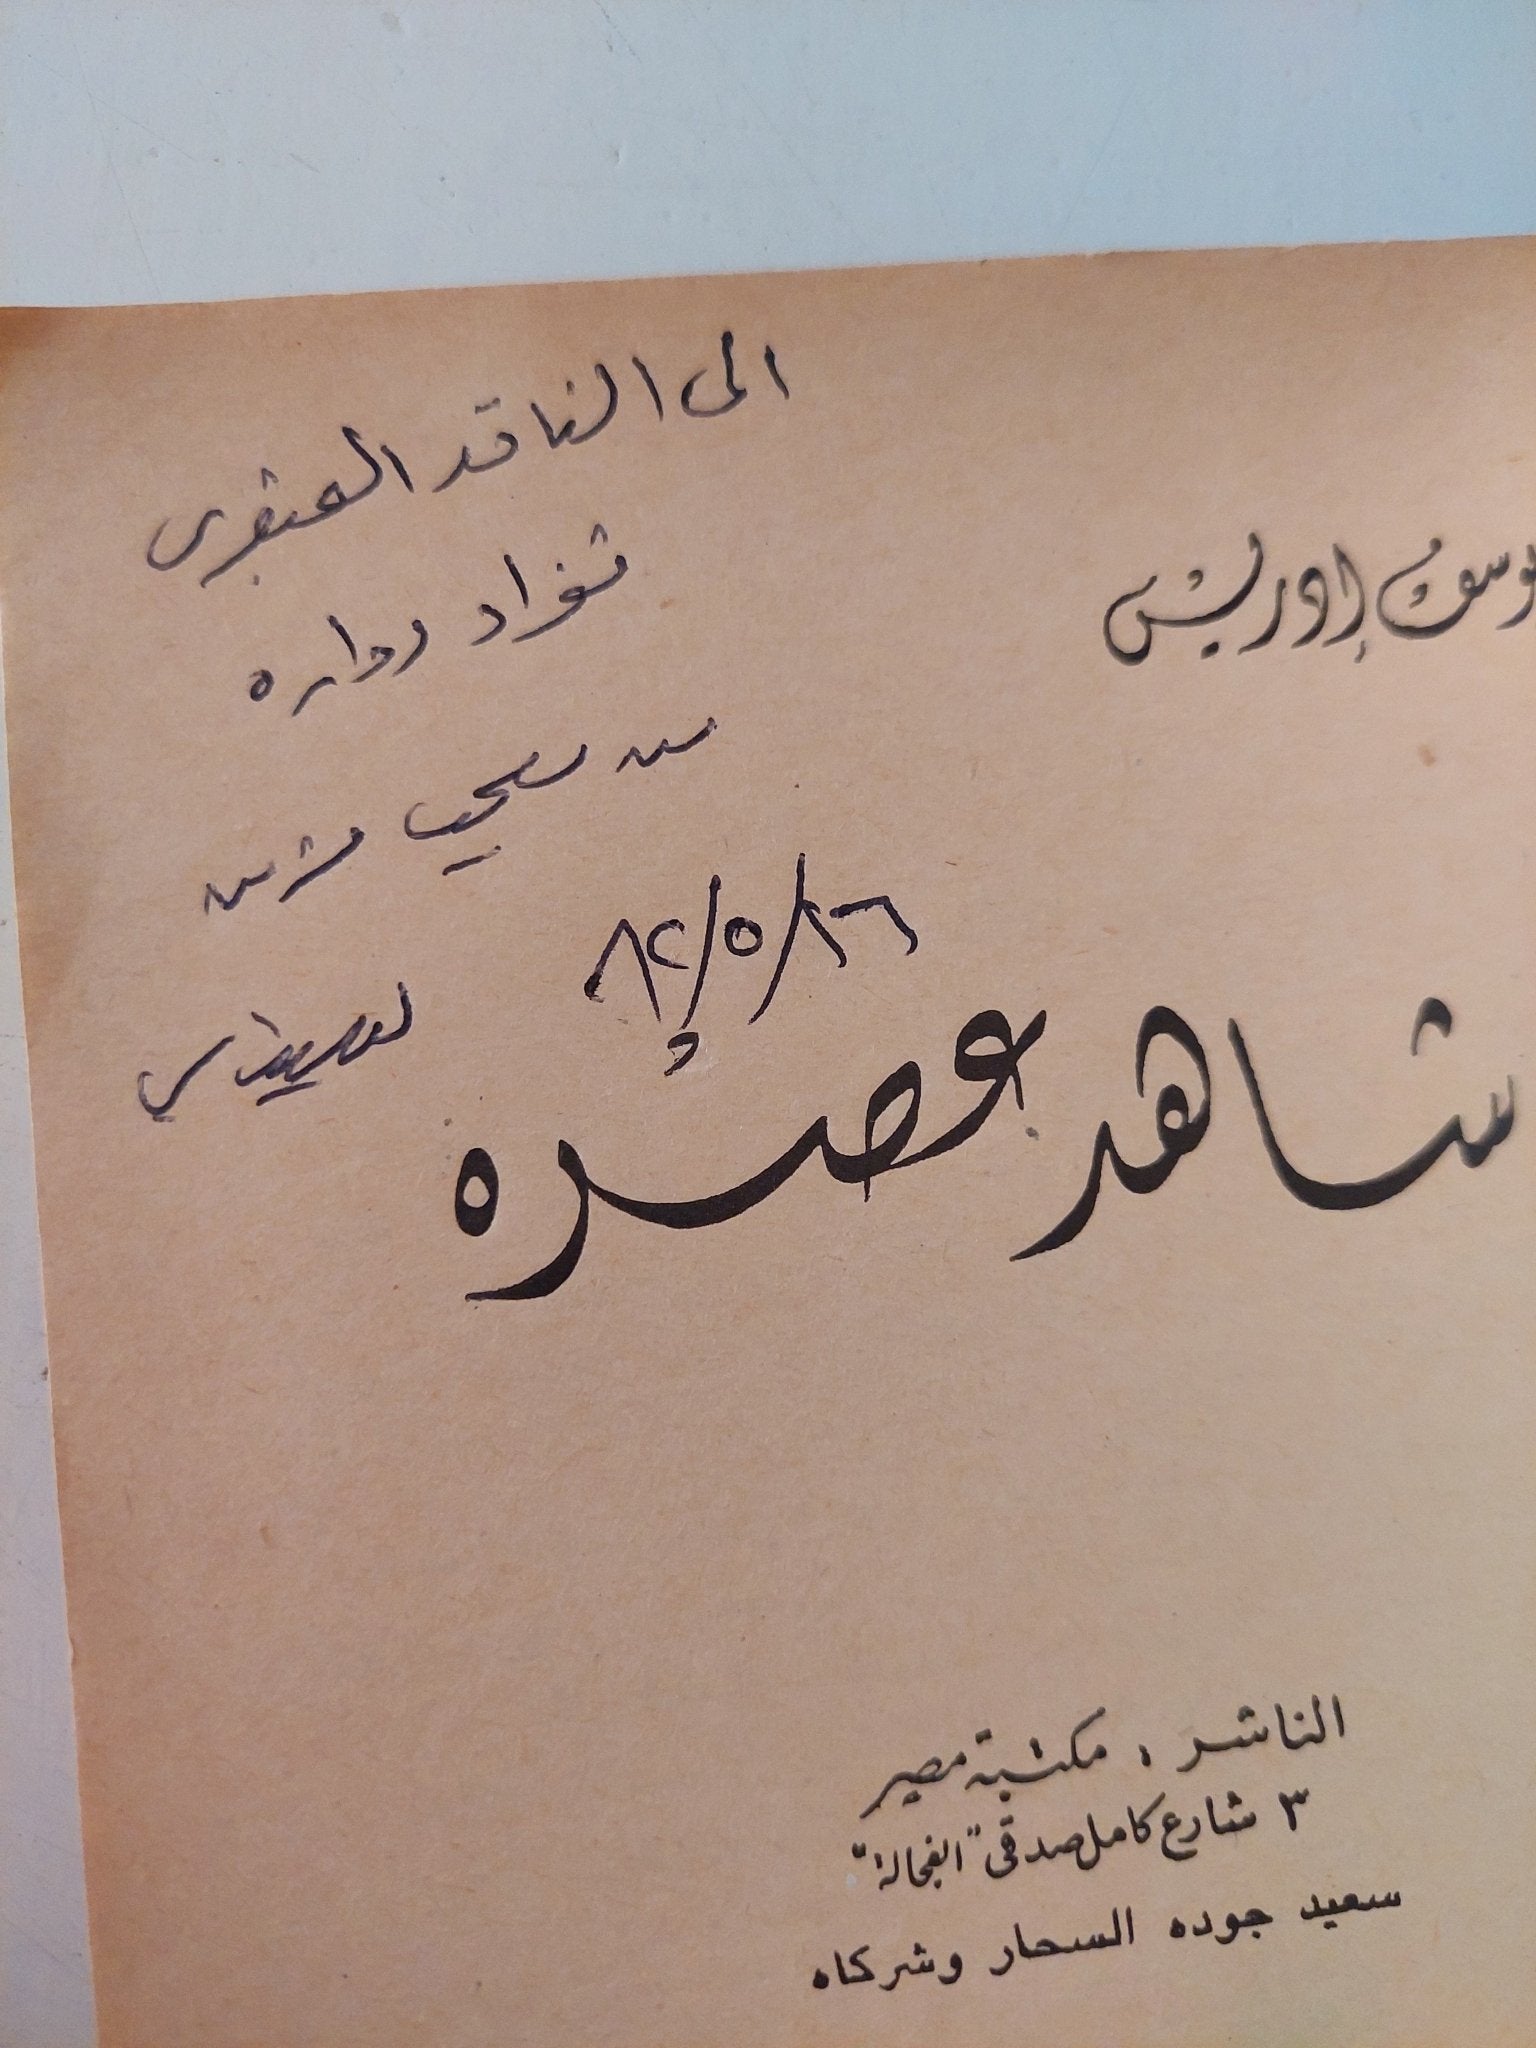 الى الناقد العبقرى
فؤاد دواره
من معجب مزمن
٨٢/٥/٢٦
يوسف إدريس
شاهد عصره
الناشر : مكتبة مصر
٣ شارع كامل صدقى "الفجالة"
سعيد جوده السحار وشركاه